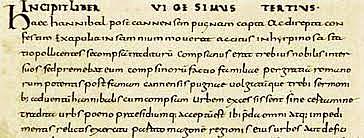 INCIPIT LIBER VIGESIMUS TERTIUS
Haec hannibal post cannensem pugnam capta ac direpta con
festim ex apulia in samnium moverat accitus in hirpinos a sta
tio pollicente se compsam traditurum compsanus erat trebius nobilis inter
suos sed premebat eum compsinorum factio familiae per gratiam romano
rum potentis post famam cannensis pugnae volgatumque trebi sermoni
bus adventum hannibalis cum compsani urbem excessissent sine certamine
tradita urbs poeno praesidiumque acceptum est ibi praeda omni atque impedi
mentis relictis exercitu partito magonem regionis eius urbes aut defici